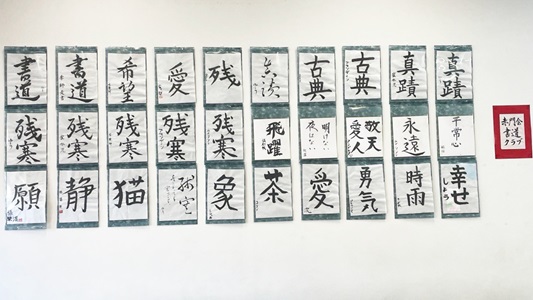 書道
書道
希望
愛
残
古典
古典
真蹟
真蹟
残寒
残寒
残寒
残寒
残寒
飛躍
明けない
夜はない
敬天
愛人
永遠
平常心
願
静
猫
象
茶
愛
勇気
時雨
幸せ
赤門会
書道
クラブ